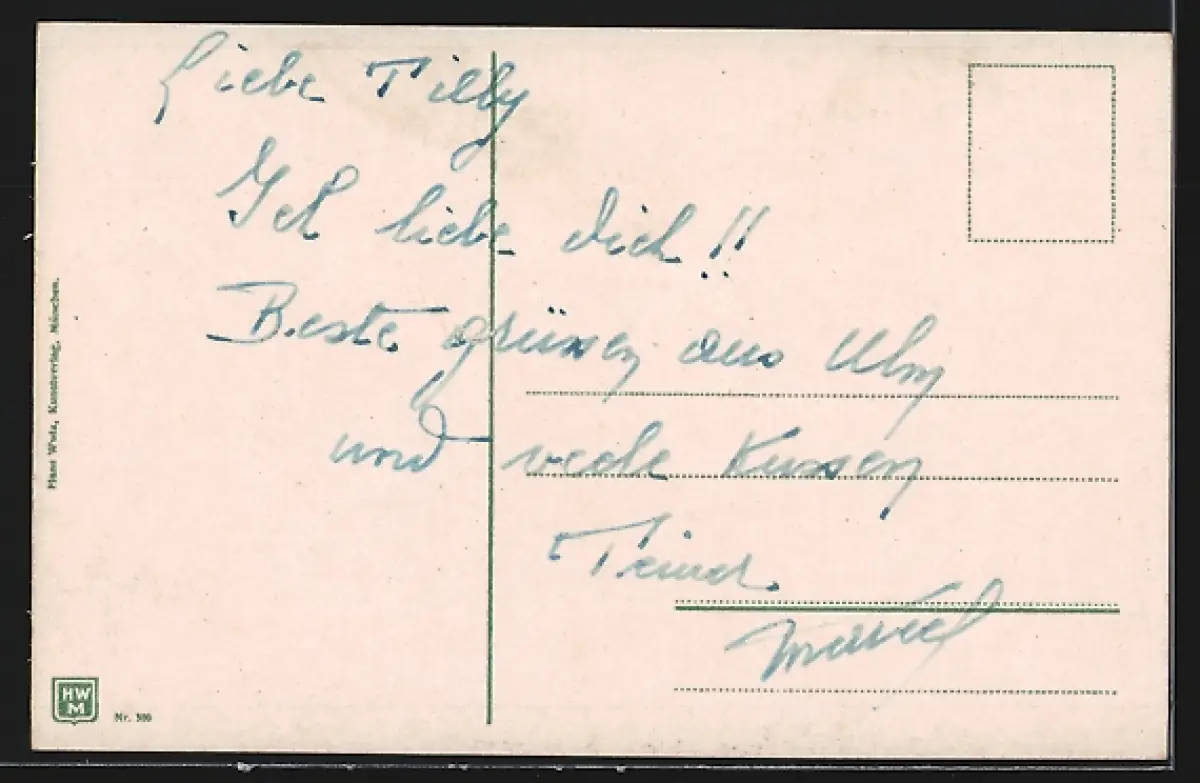 Liebe Tilly
Ich liebe dich!!
Beste grüsen aus Ulm
und viele Kussen
Marcel
Hans Wutz, Kunstverlag, München.
HW
M
Nr. 300